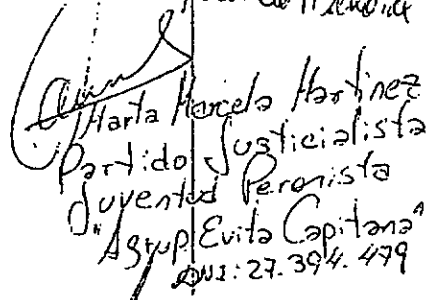 Marta Marcela Martinez
Partido Justicialista
Juventud Peronista
"Agrup. Evita Capitana"
DNI: 27.394.479